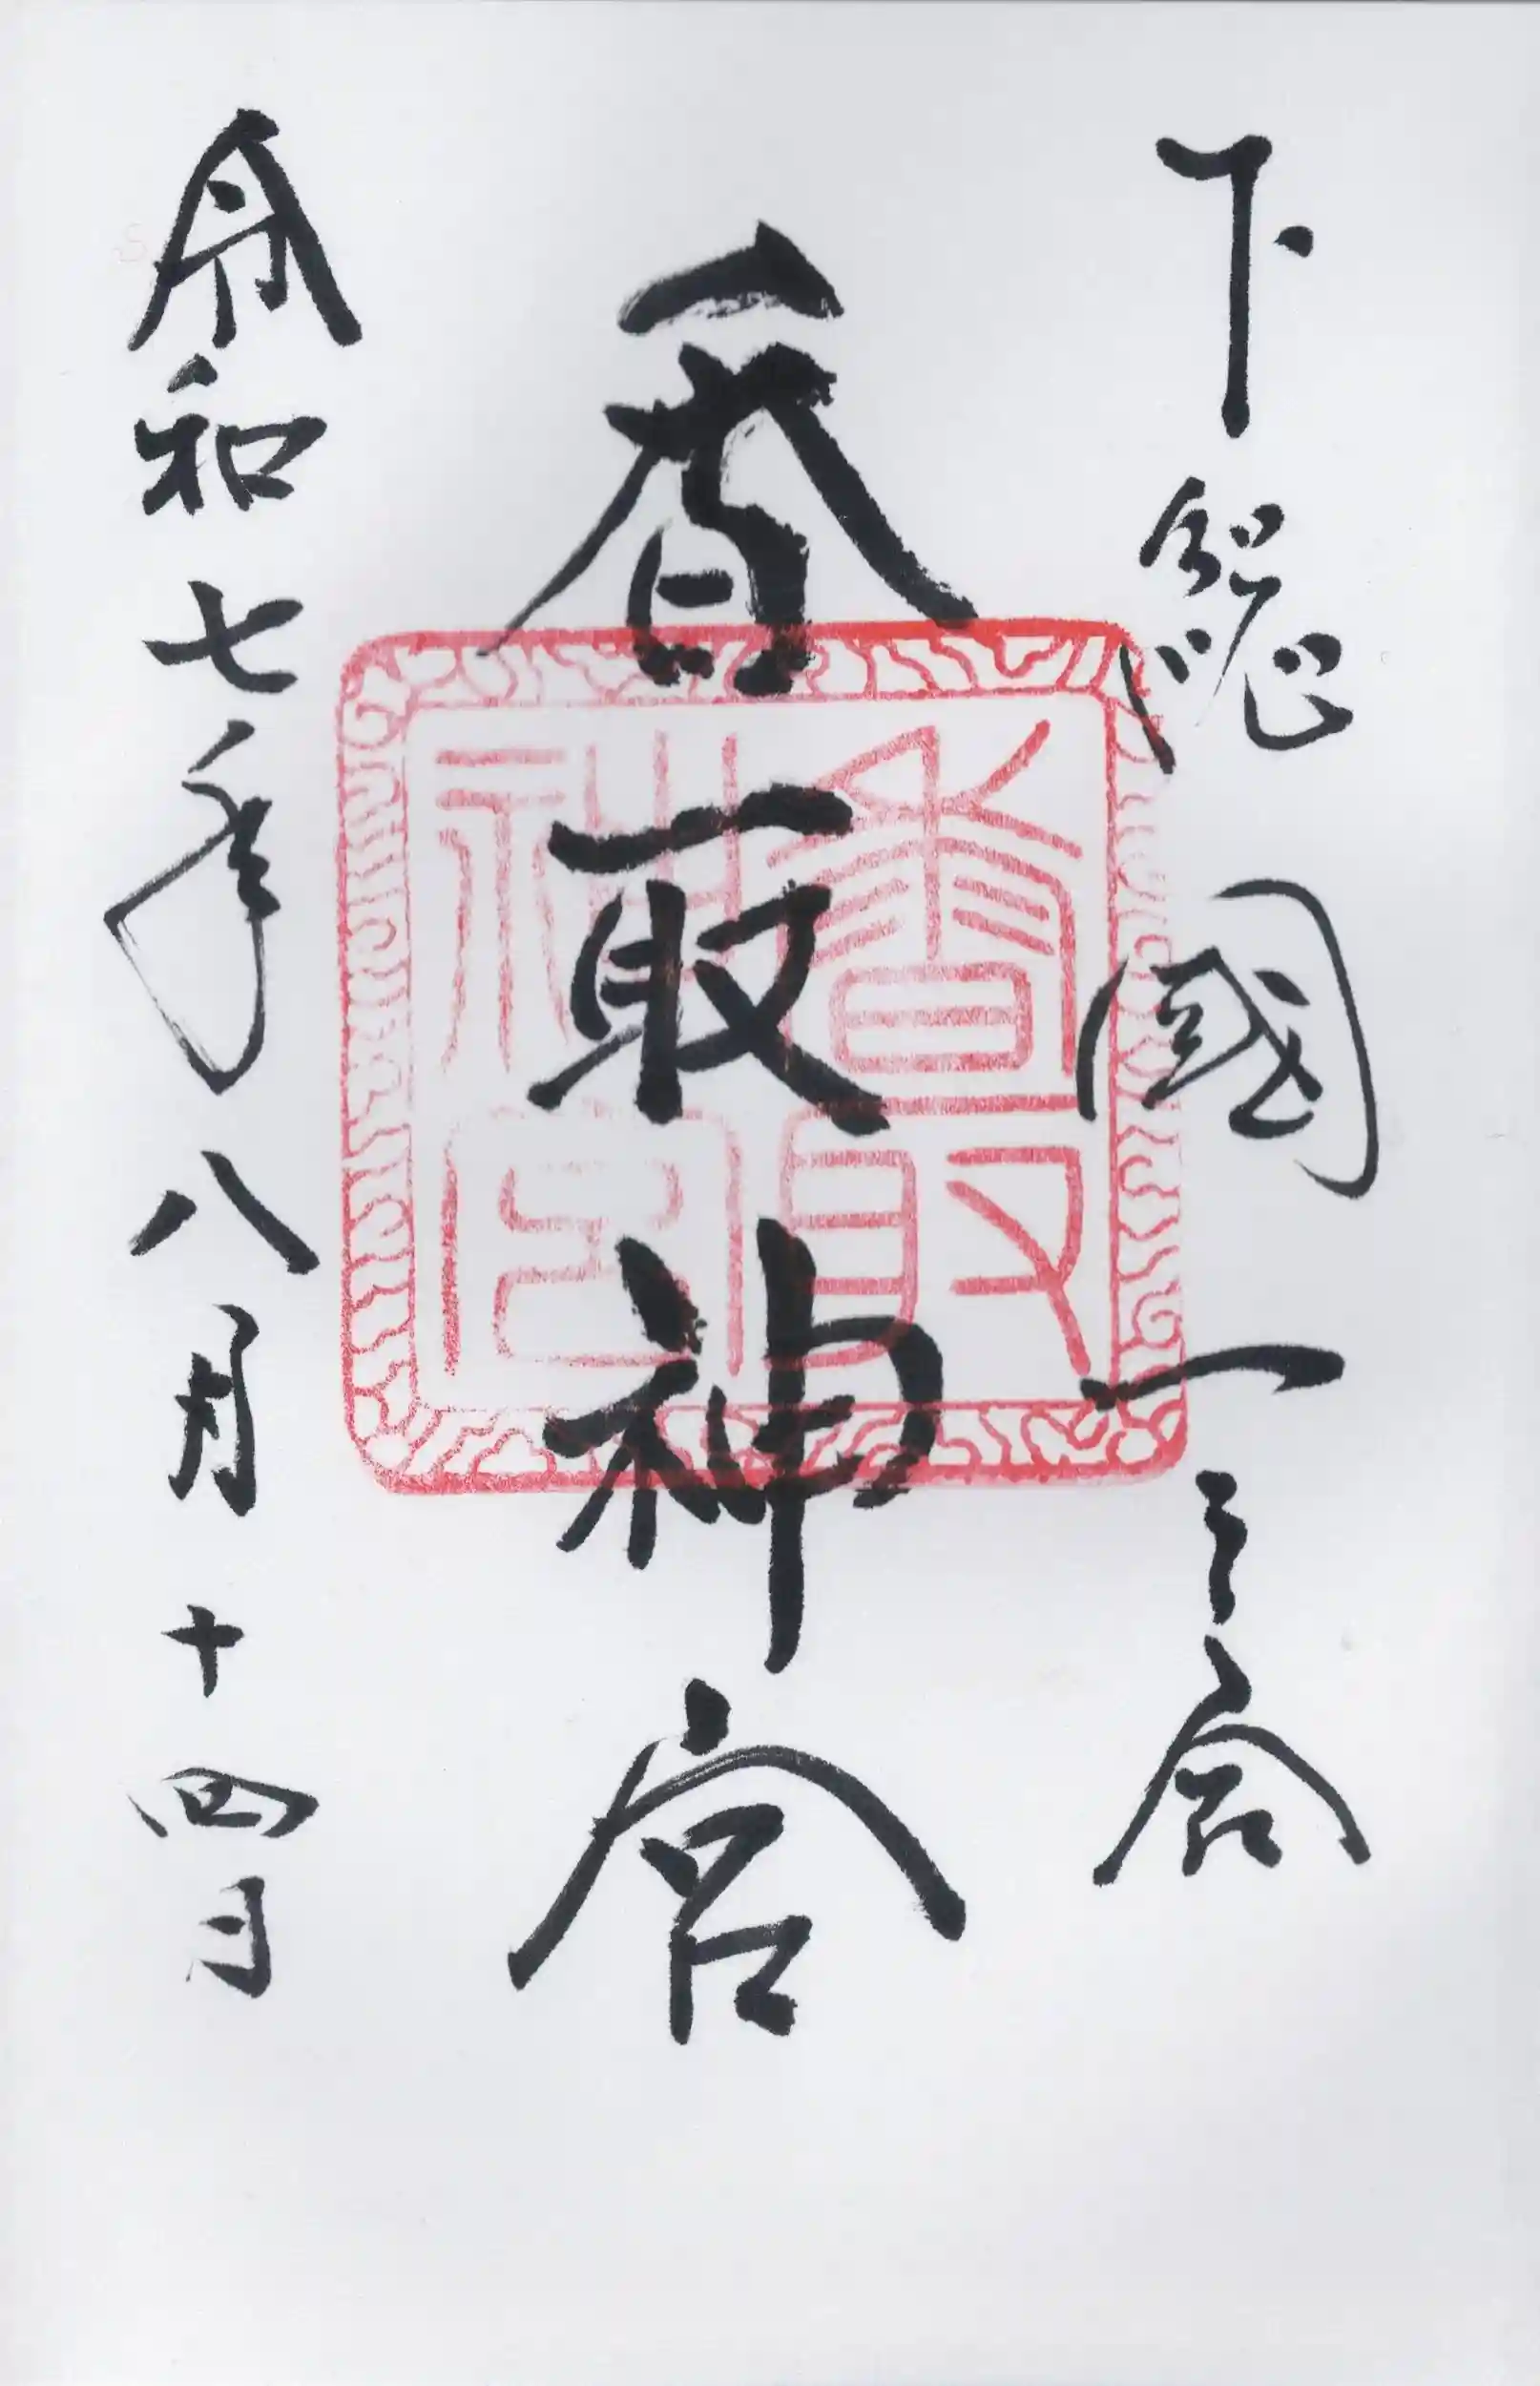 下總國一之宮
香取神宮
香取神宮
令和七年八月十四日